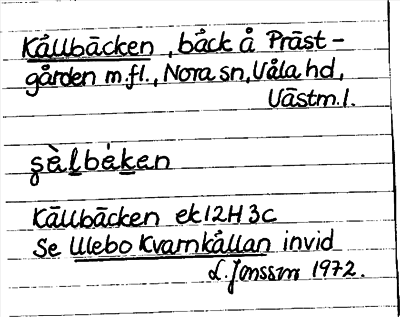 Källbäcken, bäck å Präst-
gården m.fl., Nora sn, Våla hd,
Västm.l.
s̯èl̲bék̲en
Källbäcken ek 12H 3c
Se Ulebo Kvarnkällan invid
L. Jonsson 1972.